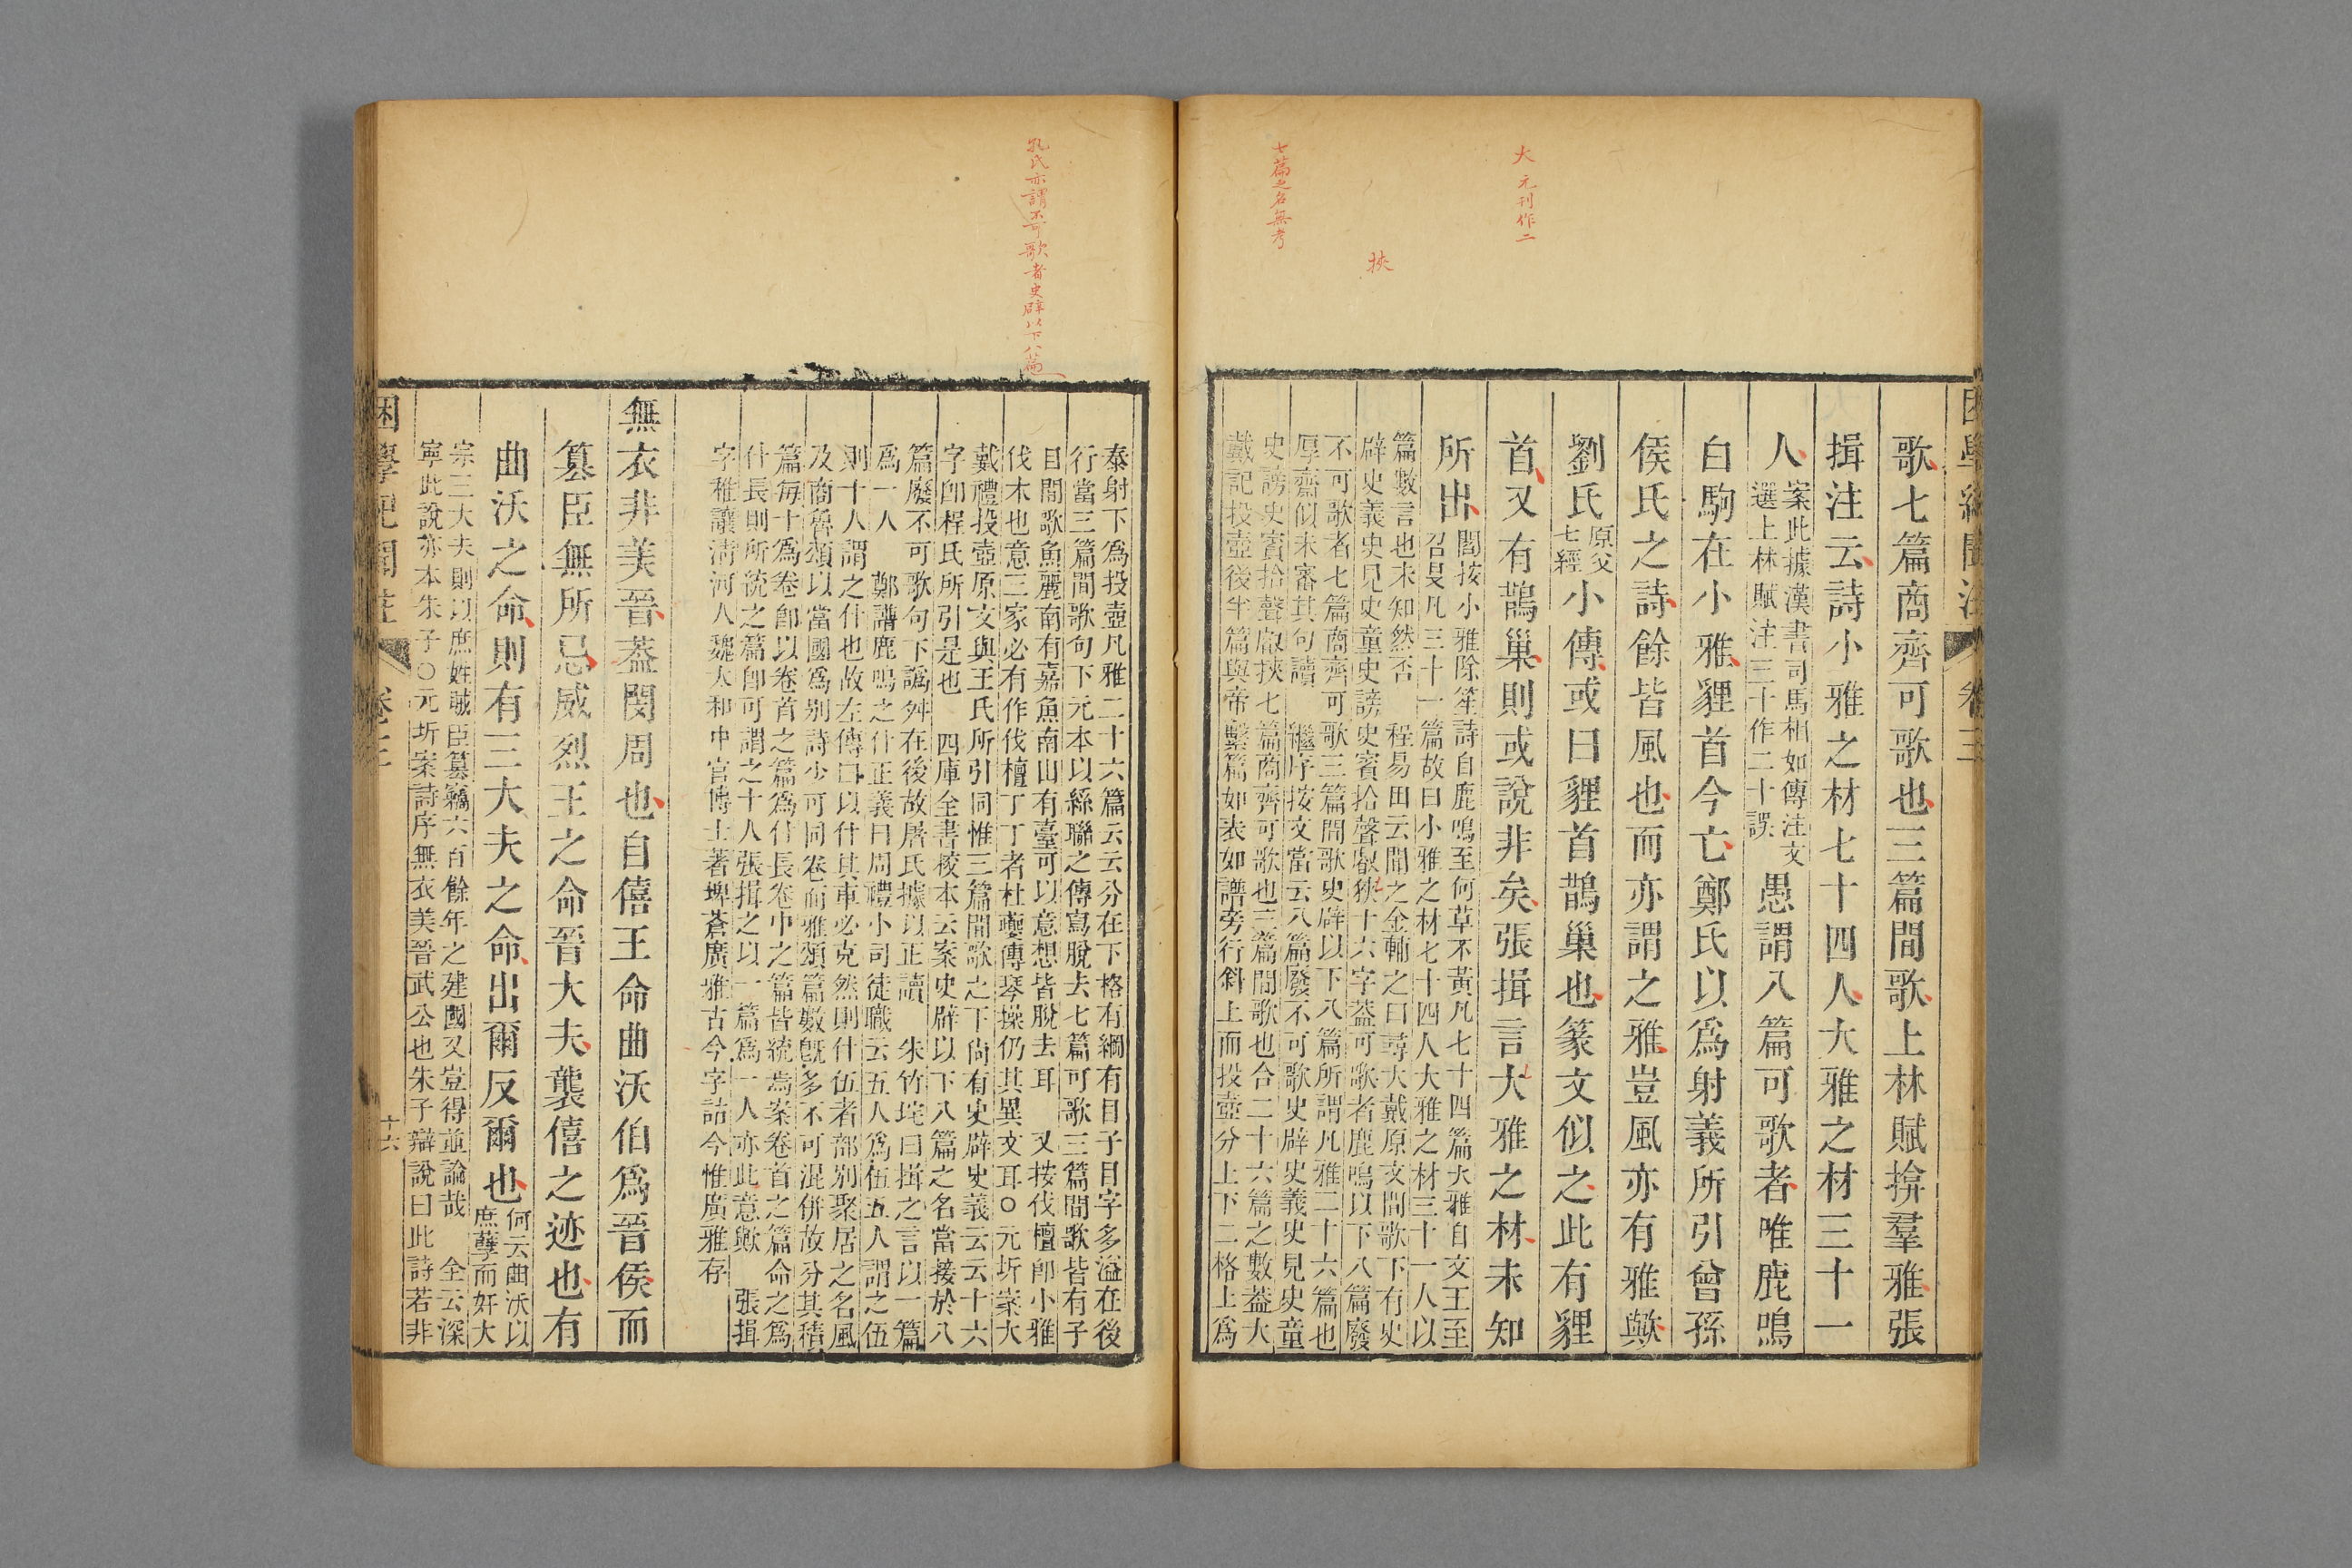 大 元刊作二
挾
七篇之名無考
歌七篇商齊可歌也三篇間歌上林賦揜羣雅張
揖注云詩小雅之材七十四人大雅之材三十一
人案此據漢書司馬相如傳注文
選上林賦注三十作二十誤愚謂八篇可歌者唯鹿鳴
白駒在小雅貍首今亡鄭氏以為射義所引曾孫
侯氏之詩餘皆風也而亦謂之雅豈風亦有雅歟
劉氏原父
七經小傳或曰貍首鵲巢也篆文似之此有貍
首又有鵲巢則或說非矣張揖言大雅之材未知
所出閻按小雅除笙詩自鹿鳴至何草不黃凡七十四篇大雅自文王至
召旻凡三十一篇故曰小雅之材七十四人大雅之材三十一人以
篇數言也未知然否 程易田云聞之金輔之曰尋大戴原文間歌下有史
辟史義史見史童史謗史賓拾聲叡狹十六字蓋可歌者鹿鳴以下八篇廢
不可歌者七篇商齊可歌三篇間歌史辟以下八篇所謂凡雅二十六篇也
厚齋似未審其句讀 繼序按文當云八篇廢不可歌史辟史義史見史童
史謗史賓拾聲叡挾七篇商齊可歌也三篇間歌也合二十六篇之數蓋大
戴記投壺後半篇與帝繫篇如表如譜旁行斜上而投壺分上下二格上為
卷三
孔氏亦謂不可歌者史辟以下八篇
泰射下為投壺凡雅二十六篇云云分在下格有綱有目子目字多溢在後
行當三篇間歌句下元本以絲聯之傳寫脫去七篇可歌三篇間歌皆有子
目間歌魚麗南有嘉魚南山有臺可以意想皆脫去耳 又按伐檀即小雅
伐木也意三家必有作伐檀丁丁者杜夔傳琴操仍其異文耳○元圻案大
戴禮投壺原文與王氏所引同惟三篇間歌之下尚有史辟史義云云十六
字即程氏所引是也 四庫全書校本云案史辟以下八篇之名當接於八
篇廢不可歌句下譌舛在後故屠氏據以正讀 朱竹垞曰揖之言以一篇
為一人 鄭譜鹿鳴之什正義曰周禮小司徒職云五人為伍五人謂之伍
則十人謂之什也故左傳曰以什其車必克然則什伍者部別聚居之名風
及商魯頌以當國為別詩少可同卷而雅頌篇數既多不可混併故分其積
篇每十為卷即以卷首之篇為什長卷中之篇皆統焉案卷首之篇命之為
什長則所統之篇即可謂之十人張揖之以一篇為一人亦此意歟 張揖
字稚讓清河人魏太和中官博士著埤蒼廣雅古今字詁今惟廣雅存
無衣非美晉蓋閔周也自僖王命曲沃伯為晉侯而
篡臣無所忌威烈王之命晉大夫襲僖之迹也有
曲沃之命則有三大夫之命出爾反爾也何云曲沃以
庶孽而奸大
宗三大夫則以庶姓戕臣篡竊六百餘年之建國又豈得並論哉 全云深
寧此說亦本朱子○元圻案詩序無衣美晉武公也朱子辯說曰此詩若非
困學紀聞注 卷三 十六